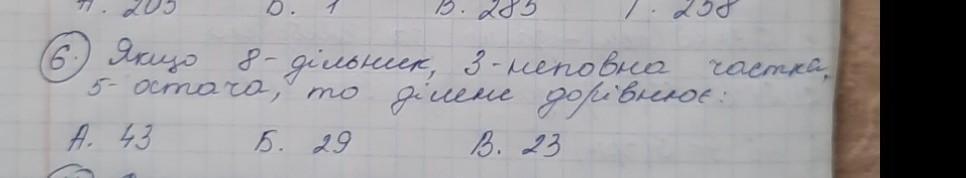 А. 205 Б. 1 В. 285 Г. 258
6. Якщо 8-дільник, 3-неповна частка,
5-остача, то ділене дорівнює:
А. 43 Б. 29 В. 23